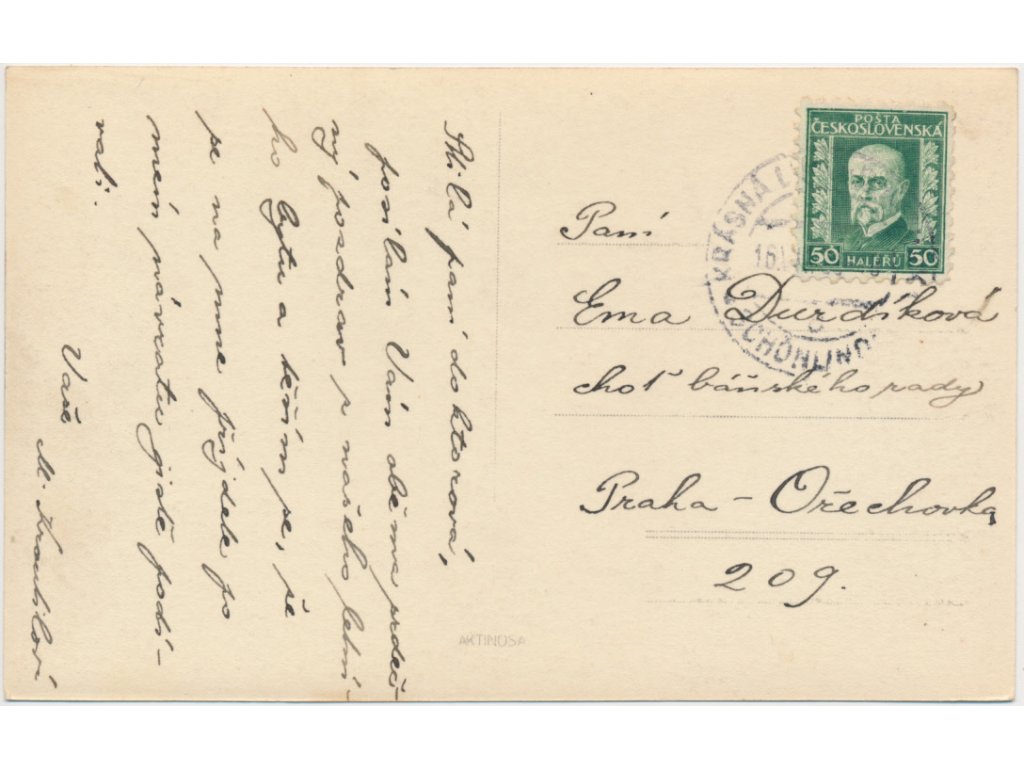 Milá paní doktorová,
posílám Vám oběma srdeč-
ný pozdrav z našeho letní-
ho bytu a těším se, že
se na mne přijdete po
mém návratu jistě podí-
vati.
Vaše
M.
POŠTA
ČESKOSLOVENSKÁ
50 HALÉŘŮ 50
KRÁSNÁ L
16.
SCHÖNLIND
Paní
Ema Durdíková
choť báňského rady
Praha - Ořechovka
209.
AKTINOSA